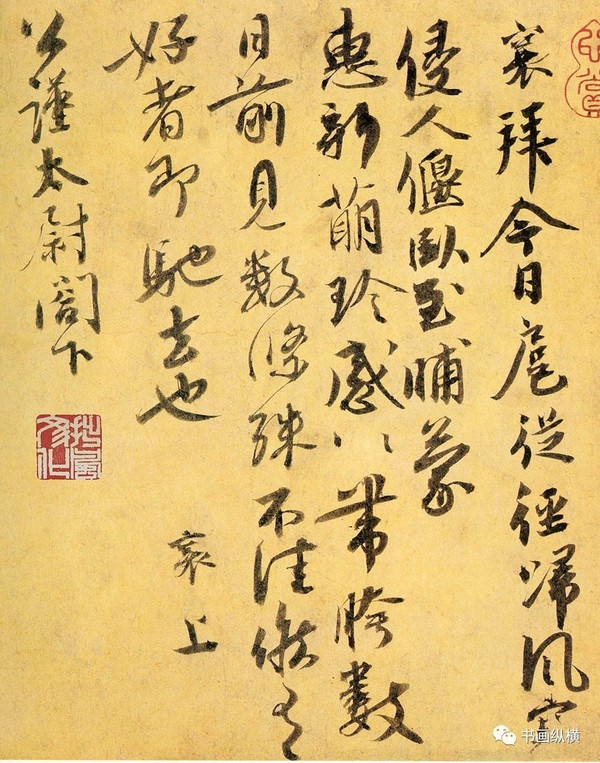 襄拜今日扈從徑歸風寒
侵人偃臥至晡蒙
惠新萌珍感〻帶胯數
日前見數條殊不佳候有
好者即馳去也
襄上
公謹太尉閣下
书画纵横